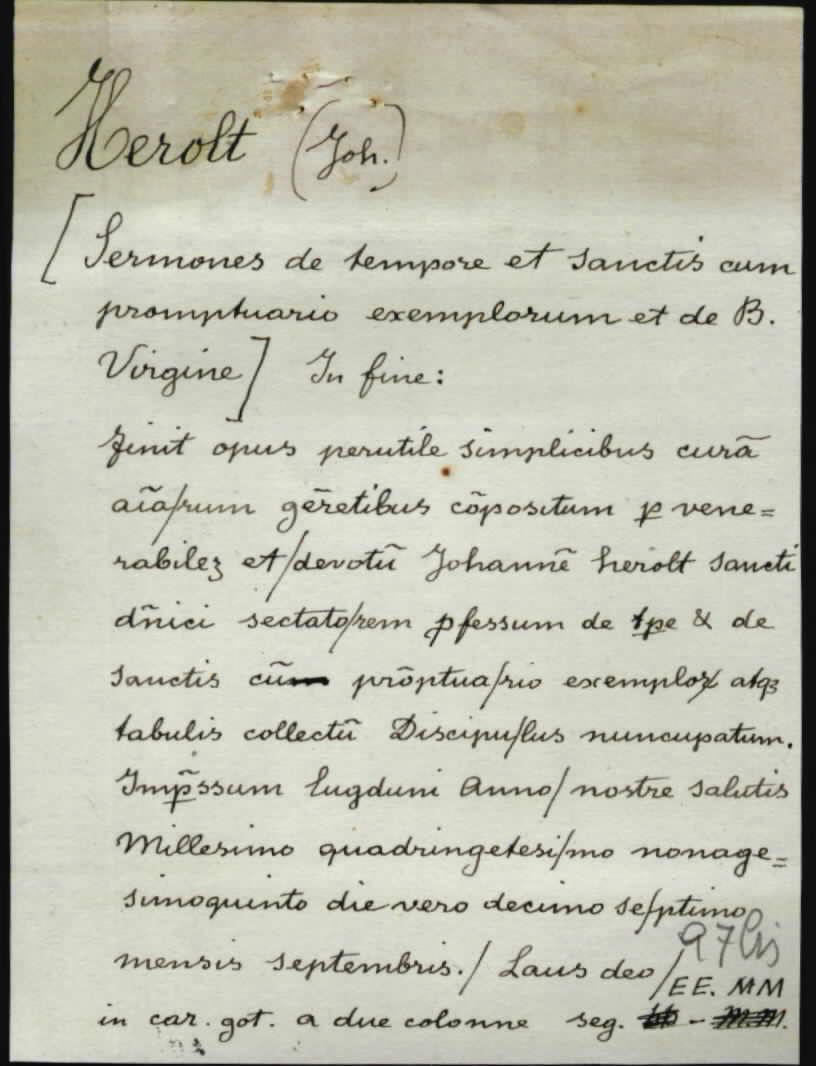 Herolt (Joh.)
[Sermones de tempore et sanctis cum
promptuario exemplorum et de B.
Virgine] In fine:
finit opus perutile simplicibus curā
aīa/rum gēretibus cōpositum ꝑ vene=
rabileʒ et/devotū Johannē herolt sancti
dn̄ici sectato/rem ꝓfessum de tp̱e & de
sanctis cū prōptua/rio exemploꝝ atqʒ
tabulis collectū Discipu/lus nuncupatum.
Imp̄ssum lugduni Anno/nostre salutis
Millesimo quadringetesi/mo nonage=
simoquinto die vero decimo se/ptimo
mensis septembris./Laus deo/
EE. MM
in car. got. a due colonne seg.